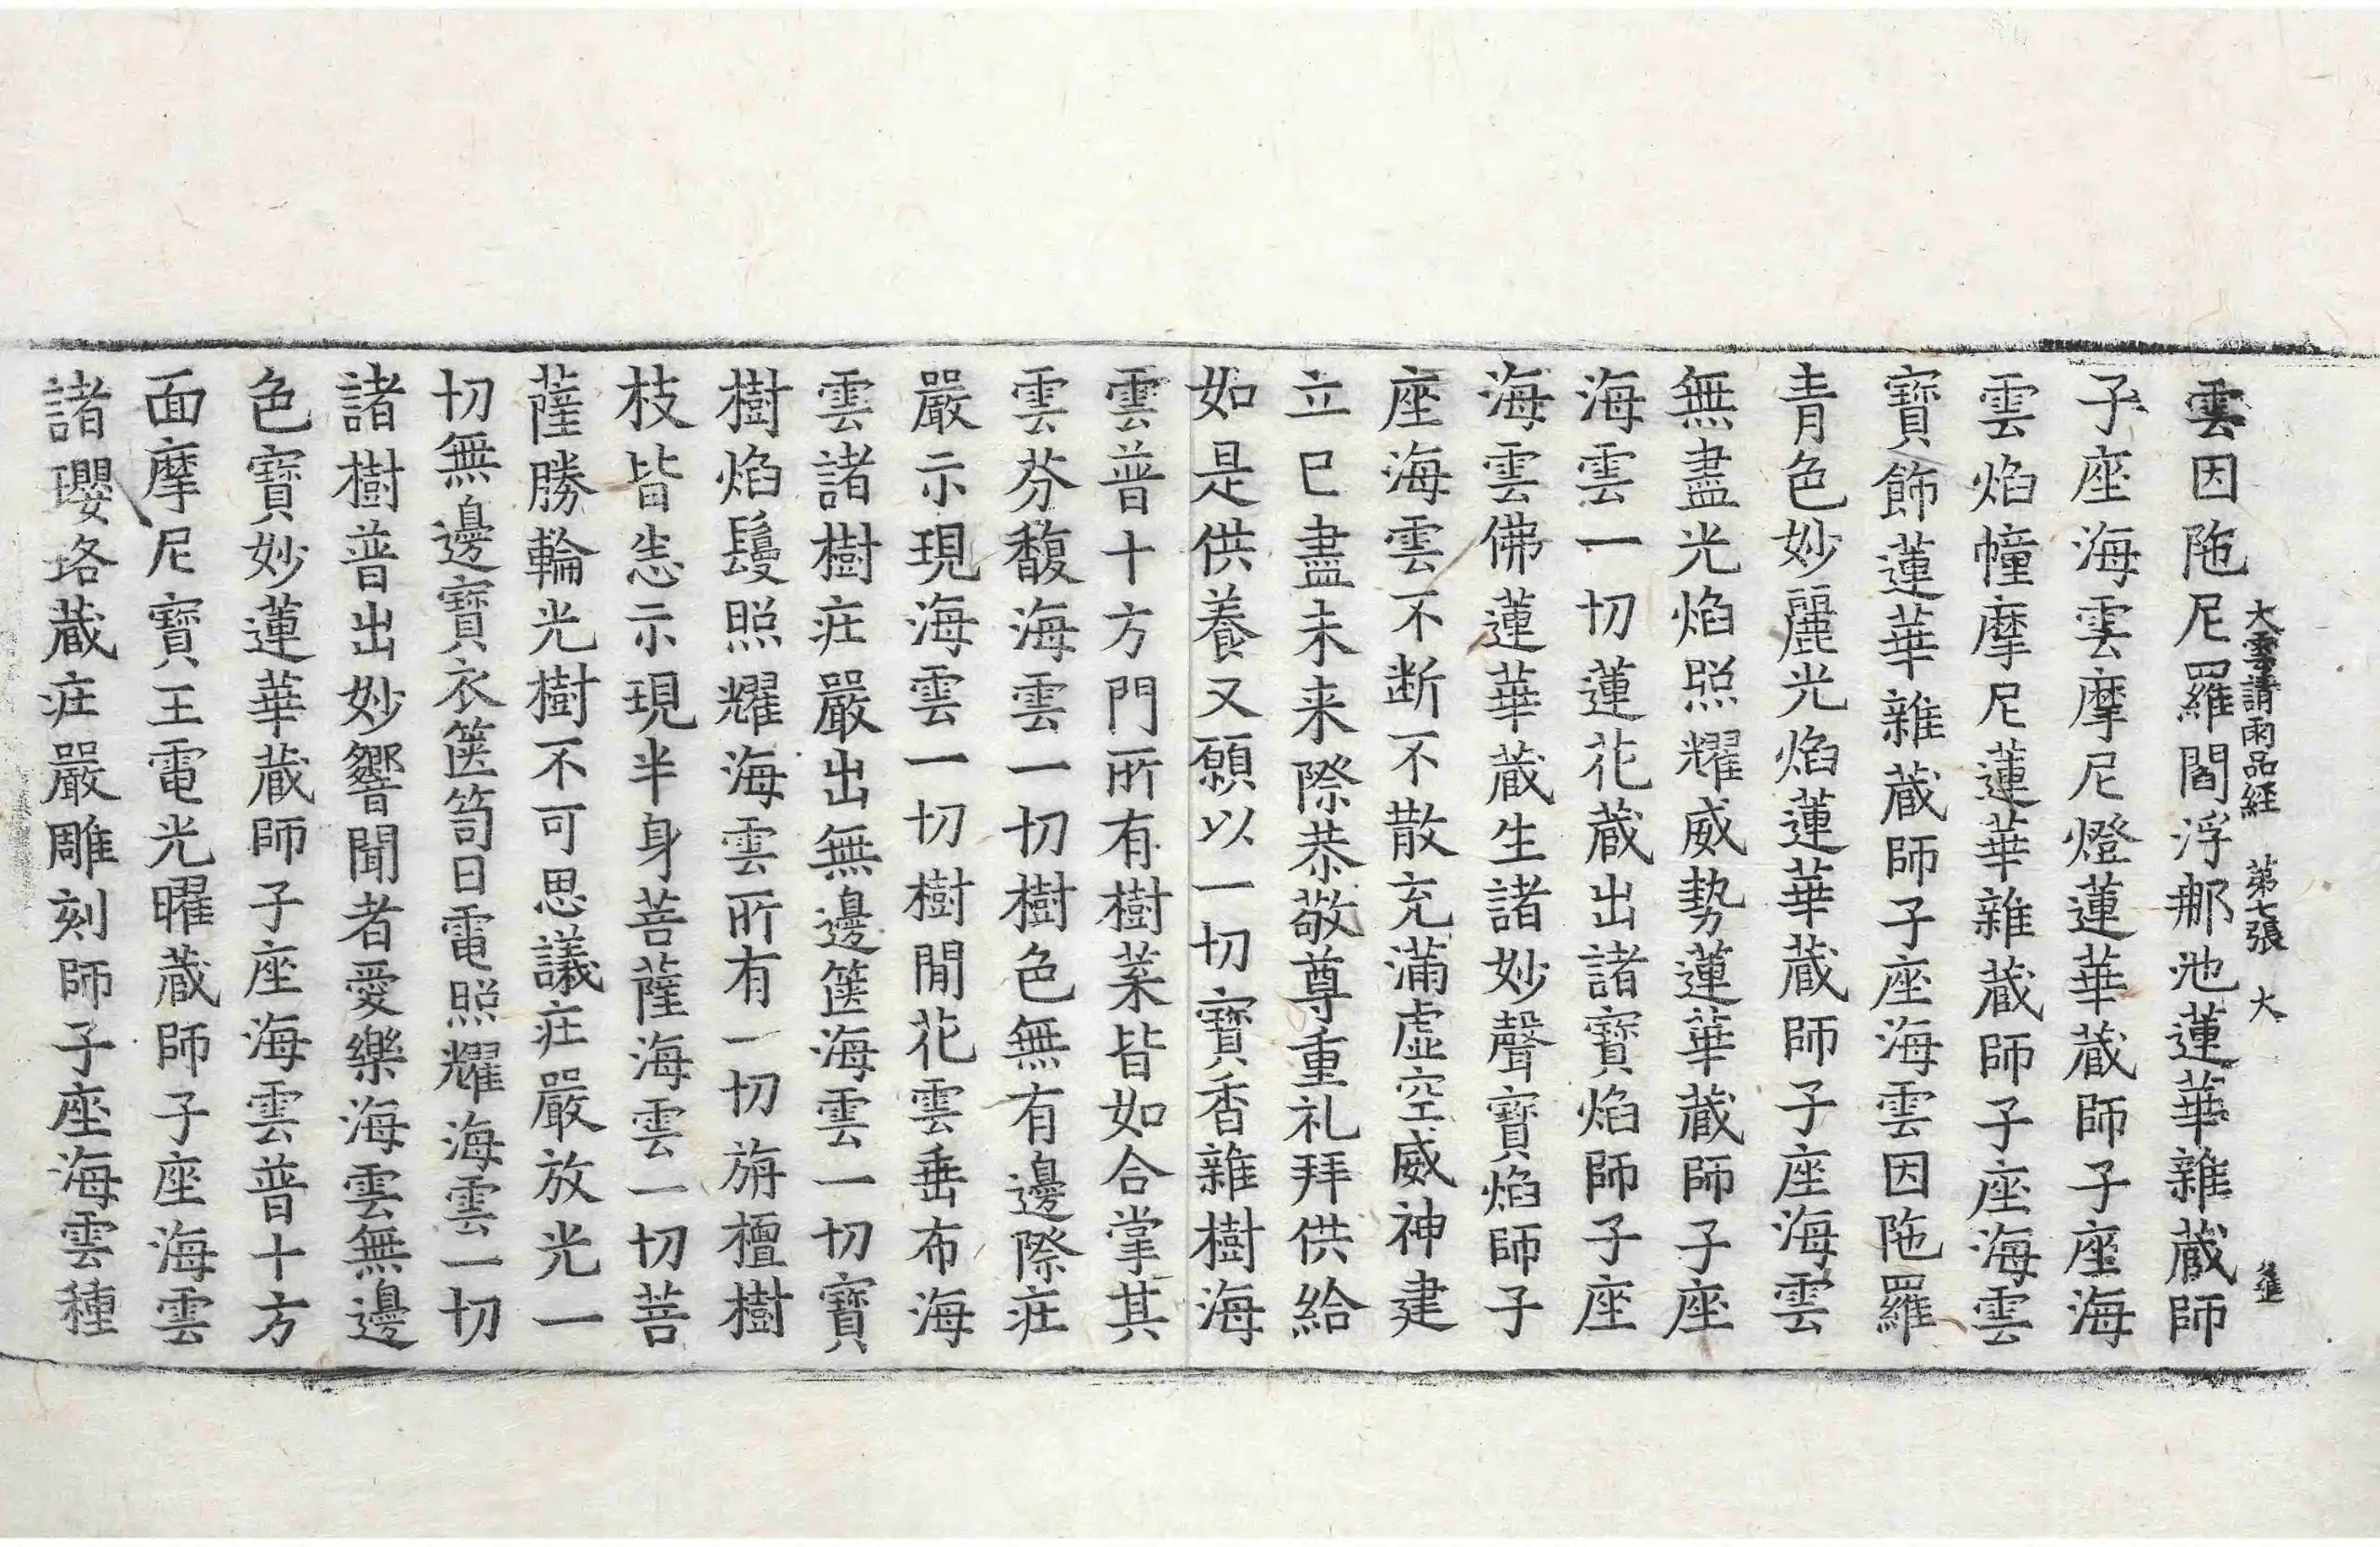 大雲請雨品経 第七張 大 進
雲因陁尼羅閻浮那池蓮華雜蔵師
子座海雲摩尼燈蓮華蔵師子座海
雲焰幢摩尼蓮華雜蔵師子座海雲
寶飾蓮華雜蔵師子座海雲因陁羅
青色妙麗光焰蓮華蔵師子座海雲
無盡光焰照耀威勢蓮華蔵師子座
海雲一切蓮花蔵出諸寶焰師子座
海雲佛蓮華蔵生諸妙聲寶焰師子
座海雲不断不散充滿虛空威神建
立已盡未来際恭敬尊重礼拜供給
如是供養又願以一切寶香雜樹海
雲普十方門所有樹葉皆如合掌其
雲芬馥海雲一切樹色無有邊際庄
嚴示現海雲一切樹閒花雲垂布海
雲諸樹庄嚴出無邊篋海雲一切寶
樹焰鬘照耀海雲所有一切旃檀樹
枝皆悉示現半身菩薩海雲一切菩
薩勝輪光樹不可思議庄嚴放光一
切無邊寶衣篋笥日電照耀海雲一切
諸樹普出妙響聞者愛樂海雲無邊
色寶妙蓮華蔵師子座海雲普十方
面摩尼寶王電光曜蔵師子座海雲
諸瓔珞蔵庄嚴雕刻師子座海雲種